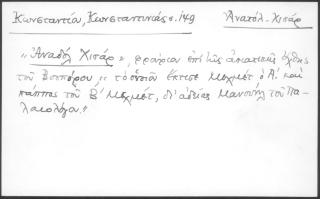 Κωνσταντίου, Κωνσταντινιάς σ. 149
Ἀνατόλ-Χισάρ
"Ἀναδὸλ Χισὰρ", φρούριον ἐπὶ τῆς ἀσιατικῆς ὄχθης
τοῦ Βοσπόρου, "τὸ ὁποῖον ἔκτισε Μεχμὲτ ὁ Α΄. καὶ
πάππος τοῦ Β΄ Μεχμέτ, δι' ἀδείας Μανουὴλ τοῦ Πα-
λαιολόγου."